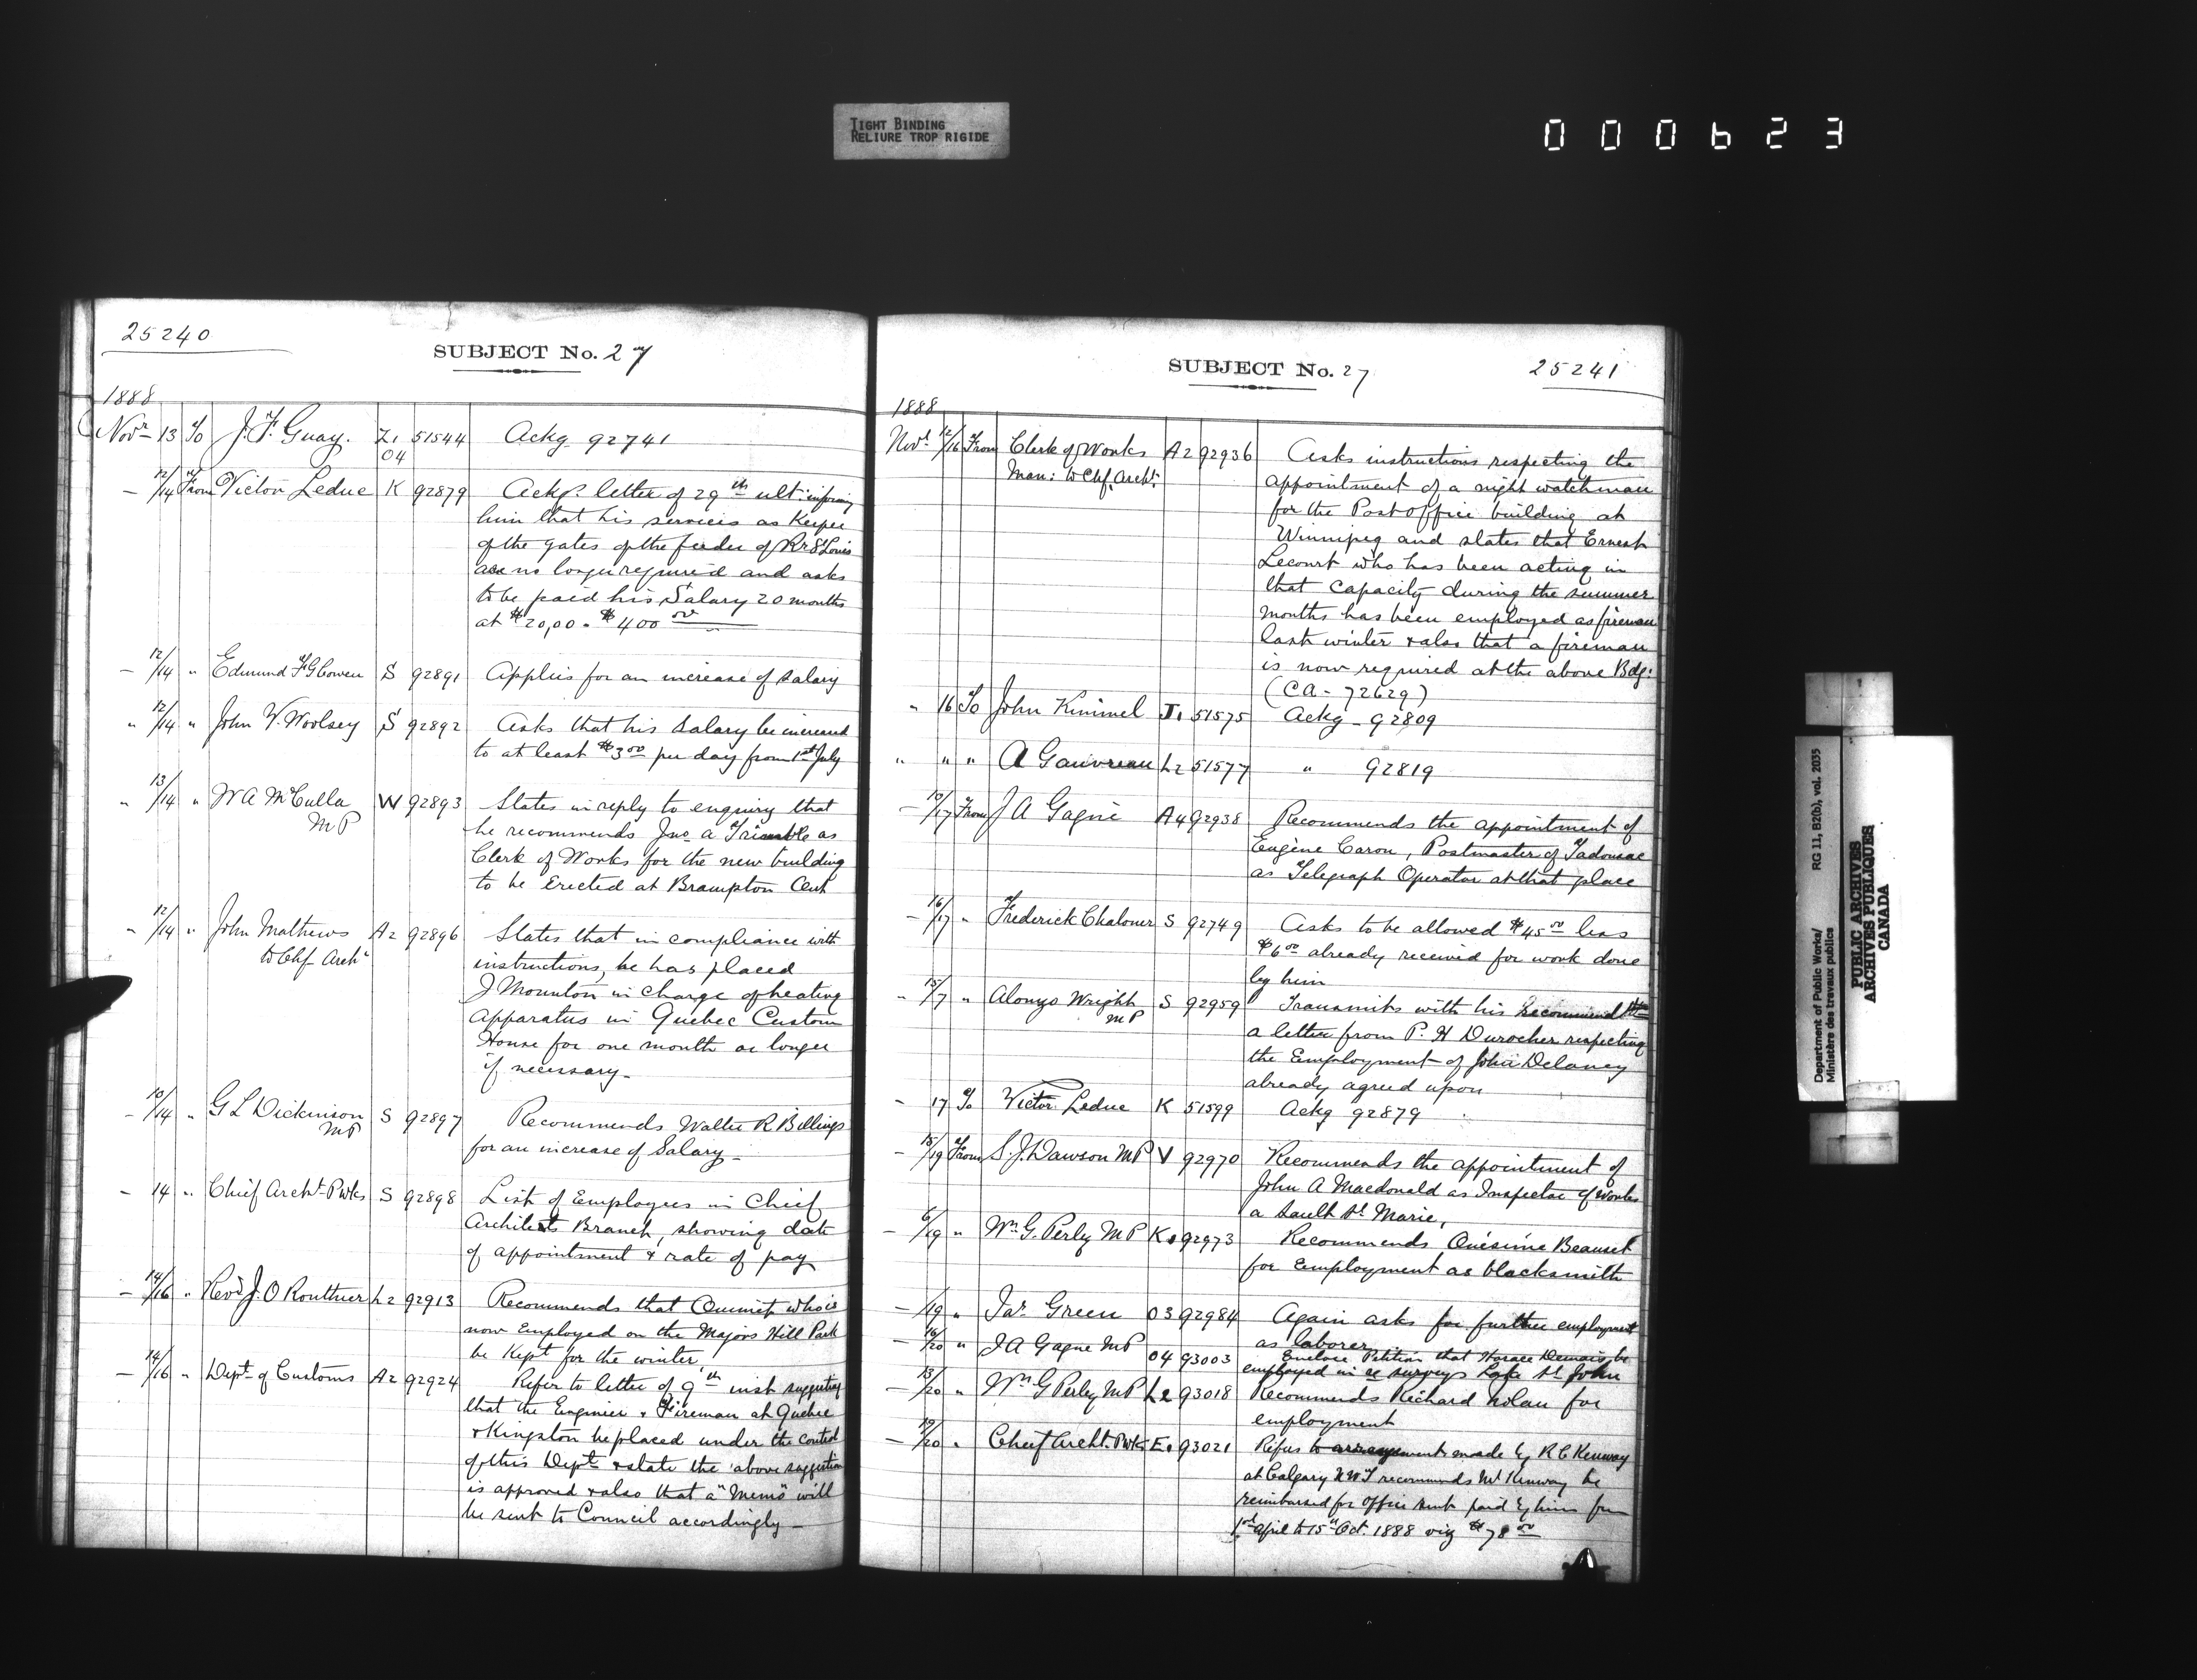 TIGHT BINDING
RELIURE TROP RIGIDE
000623
25240
SUBJECT No. 27
1888
Novr 13 To J. F. Guay. Z1 51544 Ackg 92741
04
— 12/14 From Victor Leduc K 92879 Ackg. letter of 29th ult: informing
him that his services as Keeper
of the gates of the feeder of Rr St Louis
are no longer required and asks
to be paid his Salary 20 months
at $20,00 - $400 00
— 12/14 " Edmund F G Cowen S 92891 Applies for an increase of Salary
" 12/14 " John V. Woolsey S 92892 Asks that his Salary be increased
to at least $3 00 per day from 1st July
" 13/14 " W A McCulla W 92893 States in reply to enquiry that
M P
he recommends Jno A Trimble as
Clerk of Works for the new building
to be Erected at Brampton Ont
" 12/14 " John Mathews A2 92896 States that in compliance with
to Chf Archt
instructions, he has placed
J Mounton in charge of heating
apparatus in Quebec Custom
House for one month or longer
if necessary —
— 10/14 " G L Dickinson S 92897 Recommends Walter R Billings
MP
for an increase of Salary —
— 14 " Chief Archt Pwks S 92898 List of Employees in Chief
Architects Branch, showing date
of appointment & rate of pay
— 14/16 " Revd J. O Routhier L2 92913 Recommends that who is
now Employed on the Majors Hill Park
be Kept for the winter,
— 14/16 " Dept of Customs A2 92924 Refer to letter of 9th inst suggesting
that the Engineer & Fireman at Quebec
& Kingston be placed under the control
of this Dept & state the above suggestion
is approved & also that a "Memo" will
be sent to Council accordingly —
SUBJECT No. 27
25241
1888
Novr 12/16 From Clerk of Works A2 92936 Asks instructions respecting the
Man: to Chf. Archt:
appointment of a night watchman
for the Post Office building at
Winnipeg and states that Ernest
Lecourt who has been acting in
that capacity during the summer
months has been employed as fireman
last winter & also that a fireman
is now required at the above Bdg:
(CA - 72629)
" 16 To John Kimmel J1 51575 Ackg - 92809
" " " A Gauvreau L2 51577 " 92819
— 10/17 From J A Gagné A4 92938 Recommends the appointment of
Eugène Caron, Postmaster of Tadousac
as Telegraph Operator at that place
— 16/17 " Frederick Chaloner S 92749 Asks to be allowed $45 00 less
$6 00 already received for work done
by him
" 15/17 " Alonzo Wright S 92959 Transmits with his
MP
a letter from P. H Durocher respecting
the Employment of John Delaney
already agreed upon
- 17 To Victor Leduc K 51599 Ackg 92879
- 15/19 From S. J. Dawson MP V 92970 Recommends the appointment of
John A Macdonald as Inspector of Works
a Sault St. Marie,
— 6/19 " Wm G. Perley MP K 92973 Recommends Onésime
for employment as blacksmith
— /19 " Jas. Green 03 92984 Again asks for further employment
as laborer
— 16/20 " J A Gagne MP 04 93003 Enclose Petition that Horace Demais be
employed in surveys Lake St John
— 13/20 " Wm G Perley MP L2 93018 Recommends Richard Nolan for
employment
— 19/20 " Chief Archt. Pwks E1 93021 Refers to arrangements made by R C Kenway
at Calgary NWT recommends Mr Kenway be
reimbursed for office rent paid by him from
1st April to 15th Oct. 1888 viz $78 00
Department of Public Works/
Ministère des travaux publics
RG 11, B2(b), vol. 2035
PUBLIC ARCHIVES
ARCHIVES PUBLIQUES
CANADA